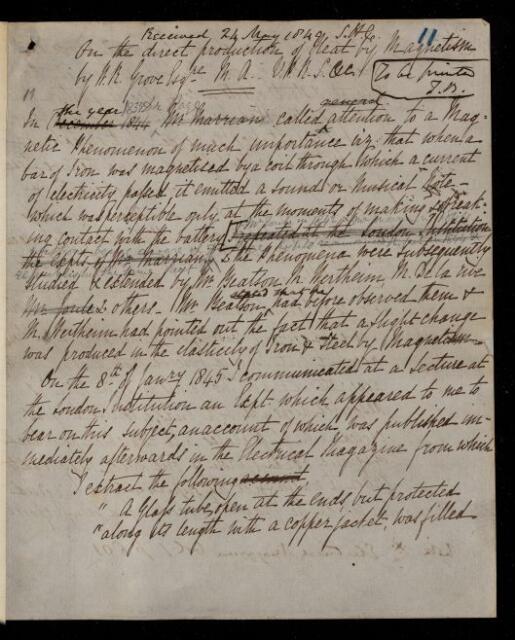 Received 24 May 1849. S.H.C.
11
On the direct production of Heat by Magnetism
by W.R. Grove Esqre M.A. V.P.R.S. &c
To be printed
In the year Mr Marrian called general attention to a Mag-
netic Phenomenon of much importance viz that when a
bar of Iron was magnetised by a coil through which a current
of electricity passed it emitted a sound or musical note
which was perceptible only at the moments of making & break-
ing contact with the battery repeated at the London Institution
the Expts of Mr Marrian & the Phenomena were subsequently
studied & extended by Mr Beatson M. Wertheim, M. De la Rive
Mr Joule & others. Mr Beatson had before observed them &
M. Wertheim had pointed out the fact that a slight change
was produced in the elasticity of Iron & Steel by Magnetism
On the 8th of Janry 1845 I communicated at a Lecture at
the London Institution an Expt which appeared to me to
bear on this subject, an account of which was published im-
mediately afterwards in the Electrical Magazine from which
I extract the following account,
" A Glass tube, open at the ends, but protected
" along its length with a copper jacket, was filled